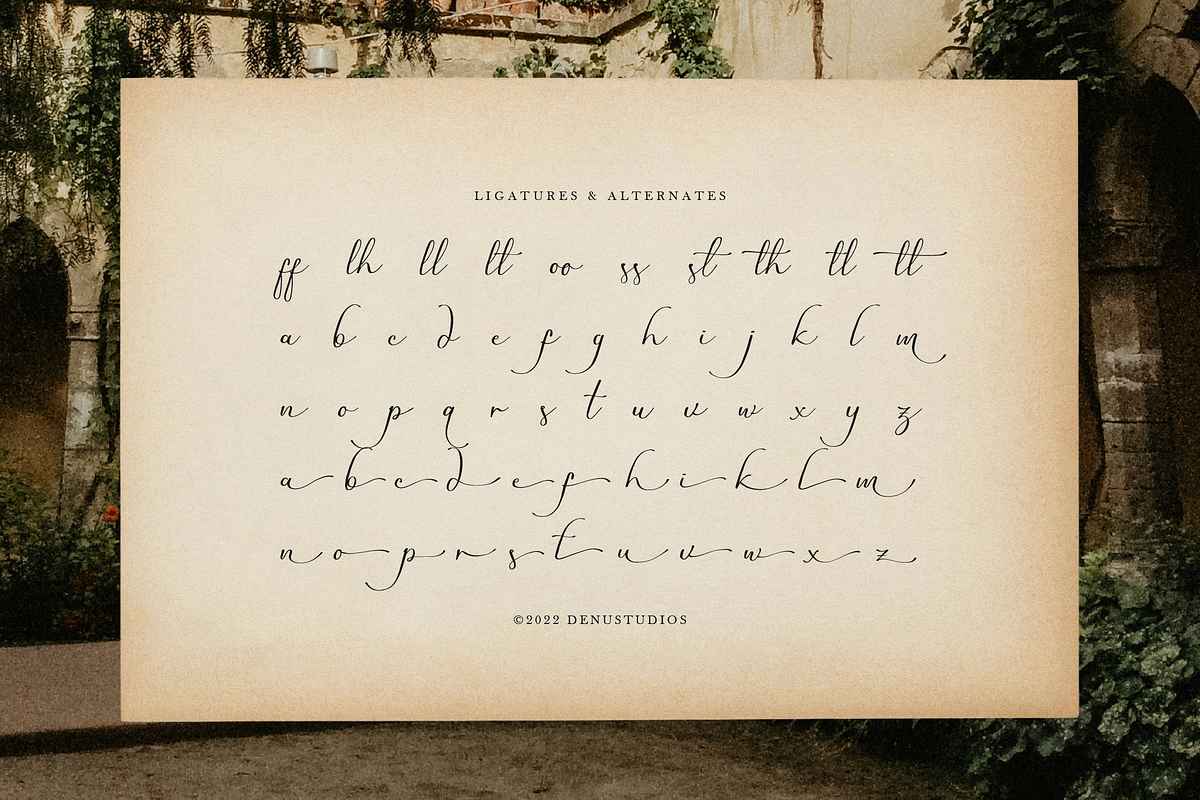 LIGATURES & ALTERNATES
ff lh ll lt oo ss st th tl tt
a b c d e f g h i j k l m
n o p q r s t u v w x y z
a b c d e f h i k l m
n o p r s t u v w x z
©2022 DENUSTUDIOS